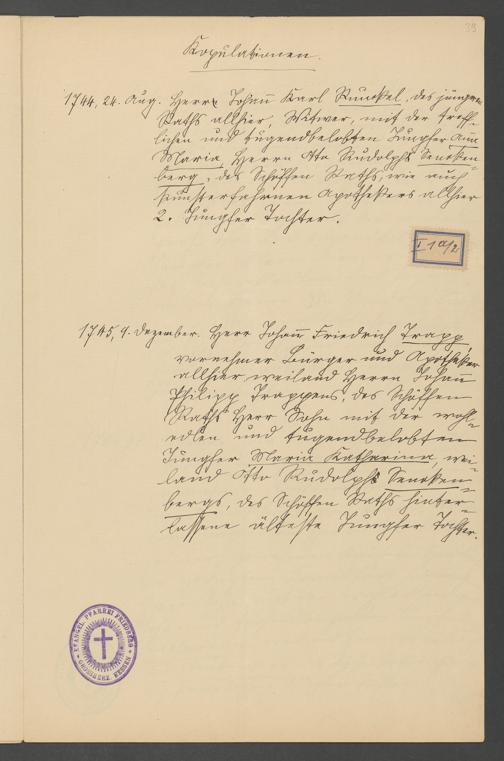 39
Kopulationen.
1744, 24. Aug. Herr Johann Karl Runckel, des jüngern
Raths allhier, Witwer, mit der treff-
lichen und tugendbelobten Jungfer Anna
Maria, Herrn Otto Rudolphs Sencken-
berg, des Schöffen Raths, wie auch
kunsterfahrnen Apothekers allhier
2. Jungfer Tochter.
I 1 a/2
1745, 9. Dezember. Herr Johann Friedrich Trapp
vornehmer Bürger und Apotheker
allhier weiland Herrn Johan
Philipp Trappens, des Schöffen
Raths Herr Sohn mit der wohl-
edlen und tugendbelobten
Jungfer Maria Katharina, wei-
land Otto Rudolphs Sencken-
bergs, des Schöffen Raths hinter-
lassene älteste Jungfer Tochter.
EVANGEL. PFARREI FRIEDBERG
GROSSHERZ. HESSEN